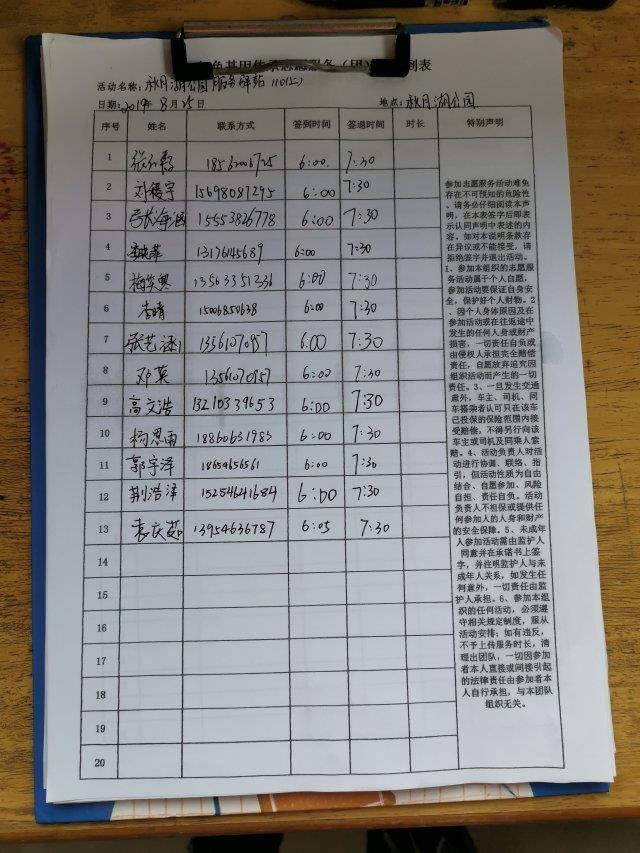 色基因传承志愿服务（团） 到表
活动名称：秋月湖公园服务驿站
日期：2019年8月25日 地点：秋月湖公园
序号 姓名 联系方式 签到时间 签退时间 时长 特别声明
1 18562006725 6:00 7:30
2 刘稷宇 15698087295 6:00 7:30
3 15553826778 6:00 7:30
4 13176145689 6:00 7:30
5 梅笑奥 13563351236 6:00 7:30
6 李晴 15006850638 6:00 7:30
7 张艺涵 13361070957 6:00 7:30
8 邓英 13561070957 6:00 7:30
9 高文浩 13210339653 6:00 7:30
10 杨思雨 18860631983 6:00 7:30
11 郭宇泽 18659656561 6:00 7:30
12 荆浩泽 15254641684 6:00 7:30
13 袁庆茹 13954636787 6:05 7:30
14
15
16
17
18
19
20
参加志愿服务活动难免
存在不可预知的危险性，
请务必仔细阅读本声
明，在本表签字后即表
示认同声明中表述的内
容。如对本说明条款存
在异议或不能接受，请
拒绝签字并退出活动。
1、参加本组织的志愿服
务活动属于个人自愿，
参加活动要保证自身安
全，保护好个人财物。2
、因个人身体原因及在
参加活动或在往返途中
发生的任何人身或财产
损害，一切责任自负或
由侵权人承担完全赔偿
责任，自愿放弃追究因
组织活动而产生的一切
责任。3、一旦发生交通
意外，车主、司机、同
车搭乘者认可只在该车
已投保的保险范围内接
受赔偿，不得另行向该
车主或司机及同乘人索
赔。4、活动负责人对活
动进行协调、联络、指
引，但活动性质为自由
结合、自愿参加、风险
自担、责任自负。活动
负责人不担保或提供任
何参加人的人身和财产
的安全保障。5、未成年
人参加活动需由监护人
同意并在承诺书上签
字，并注明监护人与未
成年人关系，如发生任
何意外，一切责任由监
护人承担。6、参加本组
织的任何活动，必须遵
守相关规定制度，服从
活动安排；如有违反，
不予上传服务时长，清
理出团队，一切因参加
本人直接或间接引起
的法律责任由参加者本
人自行承担，与本团队
组织无关。